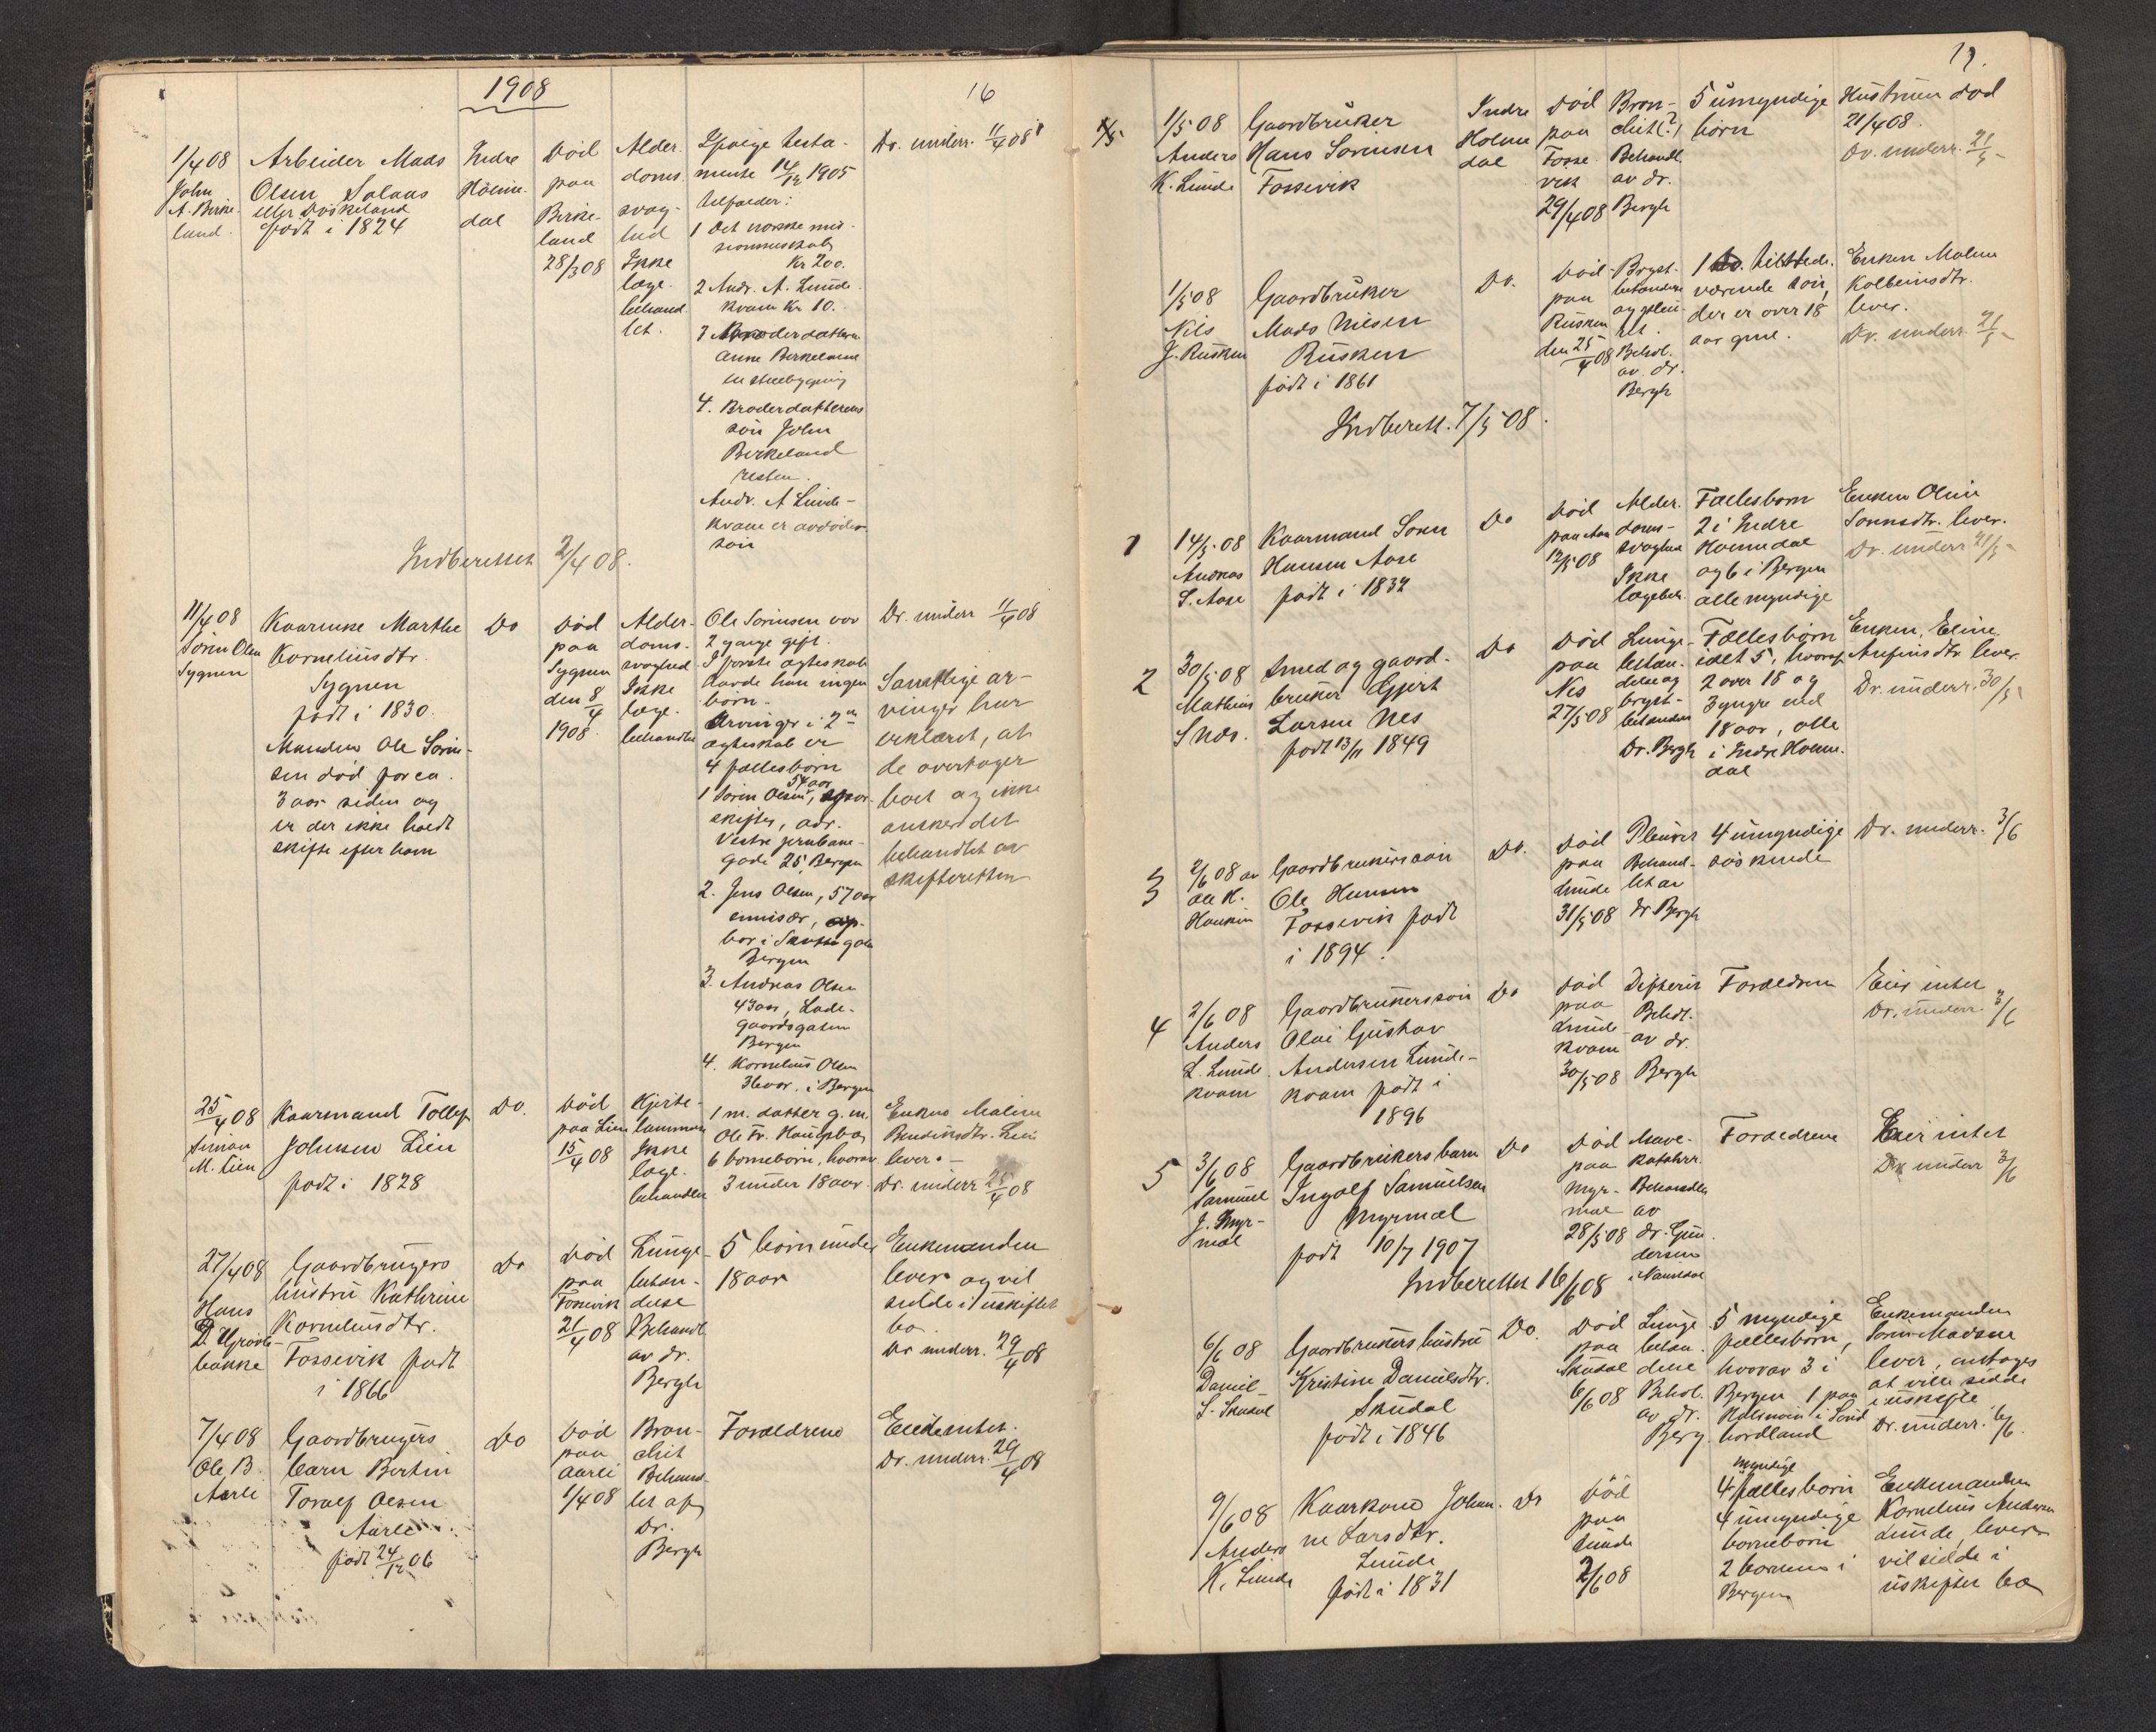 1908
16
1/4 08
John
A. Birke-
land.
Arbeider Mads
Olsen Solaas
eller Døskeland
født i 1824
Indre
Holme
dal
Død
paa
Birke-
land
28/3 08
Alder
doms
svag-
hed
Ikke
læge-
behand
let.
Ifølge testa-
mente 14/12 1905
tilfalder:
1 Det norske mis-
sionsselskab
Kr 200.
2 Andr. A. Lunde
kvam Kr 10.
3 Broderdatteren
Anne Birkeland
en stuebygning
4. Broderdatterens
søn John
Birkeland
resten.
Andr. A Lunde-
kvam er avdødes
søn
Dr. underr. 11/4 08
Indberettet 2/4 08.
11/4 08
Søren Olsen
Sygnen
Kaarenke Marthe
Kornelius dtr.
Sygnen
født i 1830.
Manden Ole Sørin-
sen død for ca.
3 aar siden og
er der ikke holdt
skifte efter ham
Do
Død
paa
Sygnen
den 8/4
1908.
Alder-
doms-
svaghed
Ikke
læge-
behandlet
Ole Sørinsen var
2 gange gift.
I første egteskab
havde han ingen
børn.
Arvinger i 2det
egteskab er
4 fællesbørn
54 aar
1 Sørin Olsen, spor-
skifter, adr.
Vestre jernbane-
gade 25, Bergen
2. Jens Olsen, 57 aar
emisær,
bor i gaten
Bergen
3. Andreas Olsen
43 aar, Lade-
gaardsgaten
Bergen
4. Kornelius Olsen
36 aar, i Bergen
Dr. underr 11/4 08
Samtlige ar-
vinger har
erklæret, at
de overtager
boet og ikke
ønsker det
behandlet av
skifteretten
25/4 08
Simon
M. Lien
Kaarmand Tollef
Johnsen Lien
født i 1828
Do.
Død
paa Lien
15/4 08
Hjerte-
lammelse
Ikke
læge-
behandlet
1 m. datter g. m.
Ole Fr. Haugsbø
6 børnebørn, hvorav
3 under 18 aar.
Enken Malene
Bendiksdtr. Lien
lever.-
Dr. underr 28/4 08
27/4 08
Hans
D. Grøvle-
bakke
Gaardbrugers
hustru Kathrine
Korneliusdtr.
Fossevik født
i 1866
Do
Død
paa
Fossevik
21/4 08
Lunge-
betæn-
delse
Behandl.
av dr.
Bergh
5 børn under
18 aar
Enkemanden
lever og vil
sidde i uskiftet
bo.
Dr underr. 29/4 08
7/4 08
Ole B.
Aarli
Gaardbrugers
barn Bertin
Toralf Olsen
Aarli
født 24/12 06
Do
Død
paa
Aarli
1/4 08
Bron-
chit
Behand-
let af
Dr.
Bergh
Forældrene
Eiede intet.
Dr. underr. 29/4 08
17.
1/5 08
Anders
K. Lunde
Gaardbruker
Hans Sørinsen
Fossevik
Indre
Holme
dal
Død
paa
Fosse-
vik
29/4 08
Bron-
chit (?)
Behandl.
av dr.
Bergh
5 umyndige
børn
Hustruen død
21/4 08.
Dr. underr. 21/5
1/5 08
Nils
J. Rusken
Gaardbruker
Mads Nilsen
Rusken
født i 1861
Do.
Død
paa
Rusken
den 25/4 08
Bryst-
betændelse
og pleu-
rit.
Behdl.
av dr.
Bergh
1 tilstede-
værende søn,
der er over 18
aar gml.
Enken Malene
Kolbeinsdtr.
lever.
Dr. underr. 21/5
Indberett. 7/5 08.
1
14/5 08
Andreas
S. Aase
Kaarmand Søren
Hansen Aase
født i 1832
Do
Død
paa Aase
12/5 08
Alder-
doms-
svaghed
Ikke
lægebeh.
Fællesbørn
2 i Indre
Holmedal
og 6 i Bergen
alle myndige
Enken Oline
Sønnsdtr. lever.
Dr. underr 21/5
2
30/5 08
Mathias
S Nes.
Smed og gaard-
bruker Gjert
Larsen Nes
født 13/11 1849
Do
Død
paa
Nes
27/5 08
Lunge-
betæn-
delse og
bryst-
betændelse
Dr. Bergh
Fællesbørn
ialt 5, hvoraf
2 over 18 og
3 yngre end
18 aar, alle
i Indre Holme-
dal
Enken, Eline
Anfinsdtr lever.
Dr. underr. 30/5
3
2/6 08 av
Ole K.
Haukøen
Gaardbrukersøn
Ole Hansen
Fossevik født
i 1894.
Do.
Død
paa
Lunde
31/5 08
Pleurit
Behand-
let av
dr Bergh
4 umyndige
søskende
Dr. underr. 3/6
4
2/6 08
Anders
L. Lunde
kvam
Gaardbrukersøn
Olai Gustav
Andersen Lunde-
kvam født i
1896
Do
Død
paa
Lunde
kvam
30/5 08
Difterit
Behdt.
av dr.
Bergh
Forældrene
Eier intet
Dr. underr. 3/6
5
3/6 08
Samuel
J. Myr-
mæl
Gaardbrukers barn
Ingolf Samuelsen
Myrmæl
født 10/7 1907
Do
Død
paa
Myr-
mæl
28/5 08
Mave-
katahrr.
Behandlet
av
dr. Gun-
dersen
i Naustdal
Forældrene
Eier intet
Dr underr 3/6
Indberettet 16/6 08
6/6 08
Daniel
S. Skudal
Gaardbrukers hustru
Kristine Danielsdtr.
Skudal
født i 1846
Do.
Død
paa
Skudal
6/6 08
Lunge
betæn-
delse
Behdl.
av dr.
Berg.
5 myndige
fællesbørn,
hvorav 3 i
Bergen 1 paa
i Sønd
hordland
Enkemanden
Sønn Madsen
lever, antages
at ville sidde
i uskifte
Dr. underr. 6/6.
9/6 08
Anders
K. Lunde
Kaarkone Johan-
ne Larsdtr.
Lunde
født i 1831
Do
Død
paa
Lunde
2/6 08
myndige
4 fællesbørn
4 umyndige
børnebørn
2 børnene i
Bergen
Enkemanden
Kornelius Andersen
Lunde, lever
vil sidde i
uskiftet bo